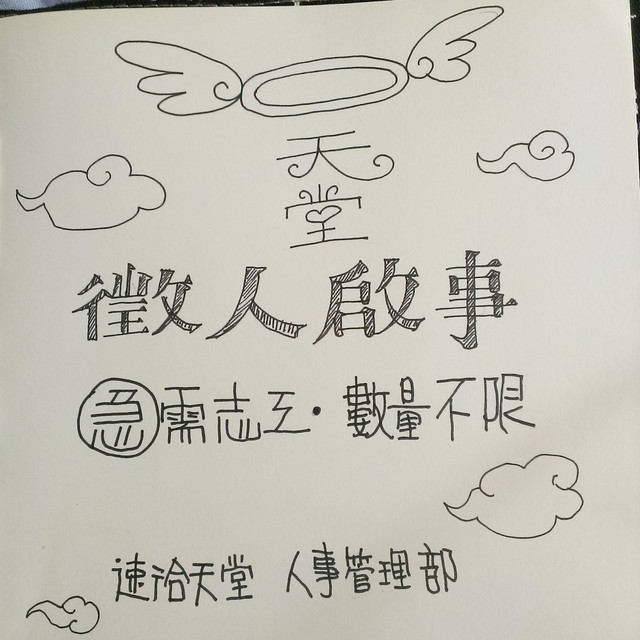 天
堂
徵人啟事
急需志工·數量不限
速洽天堂 人事管理部